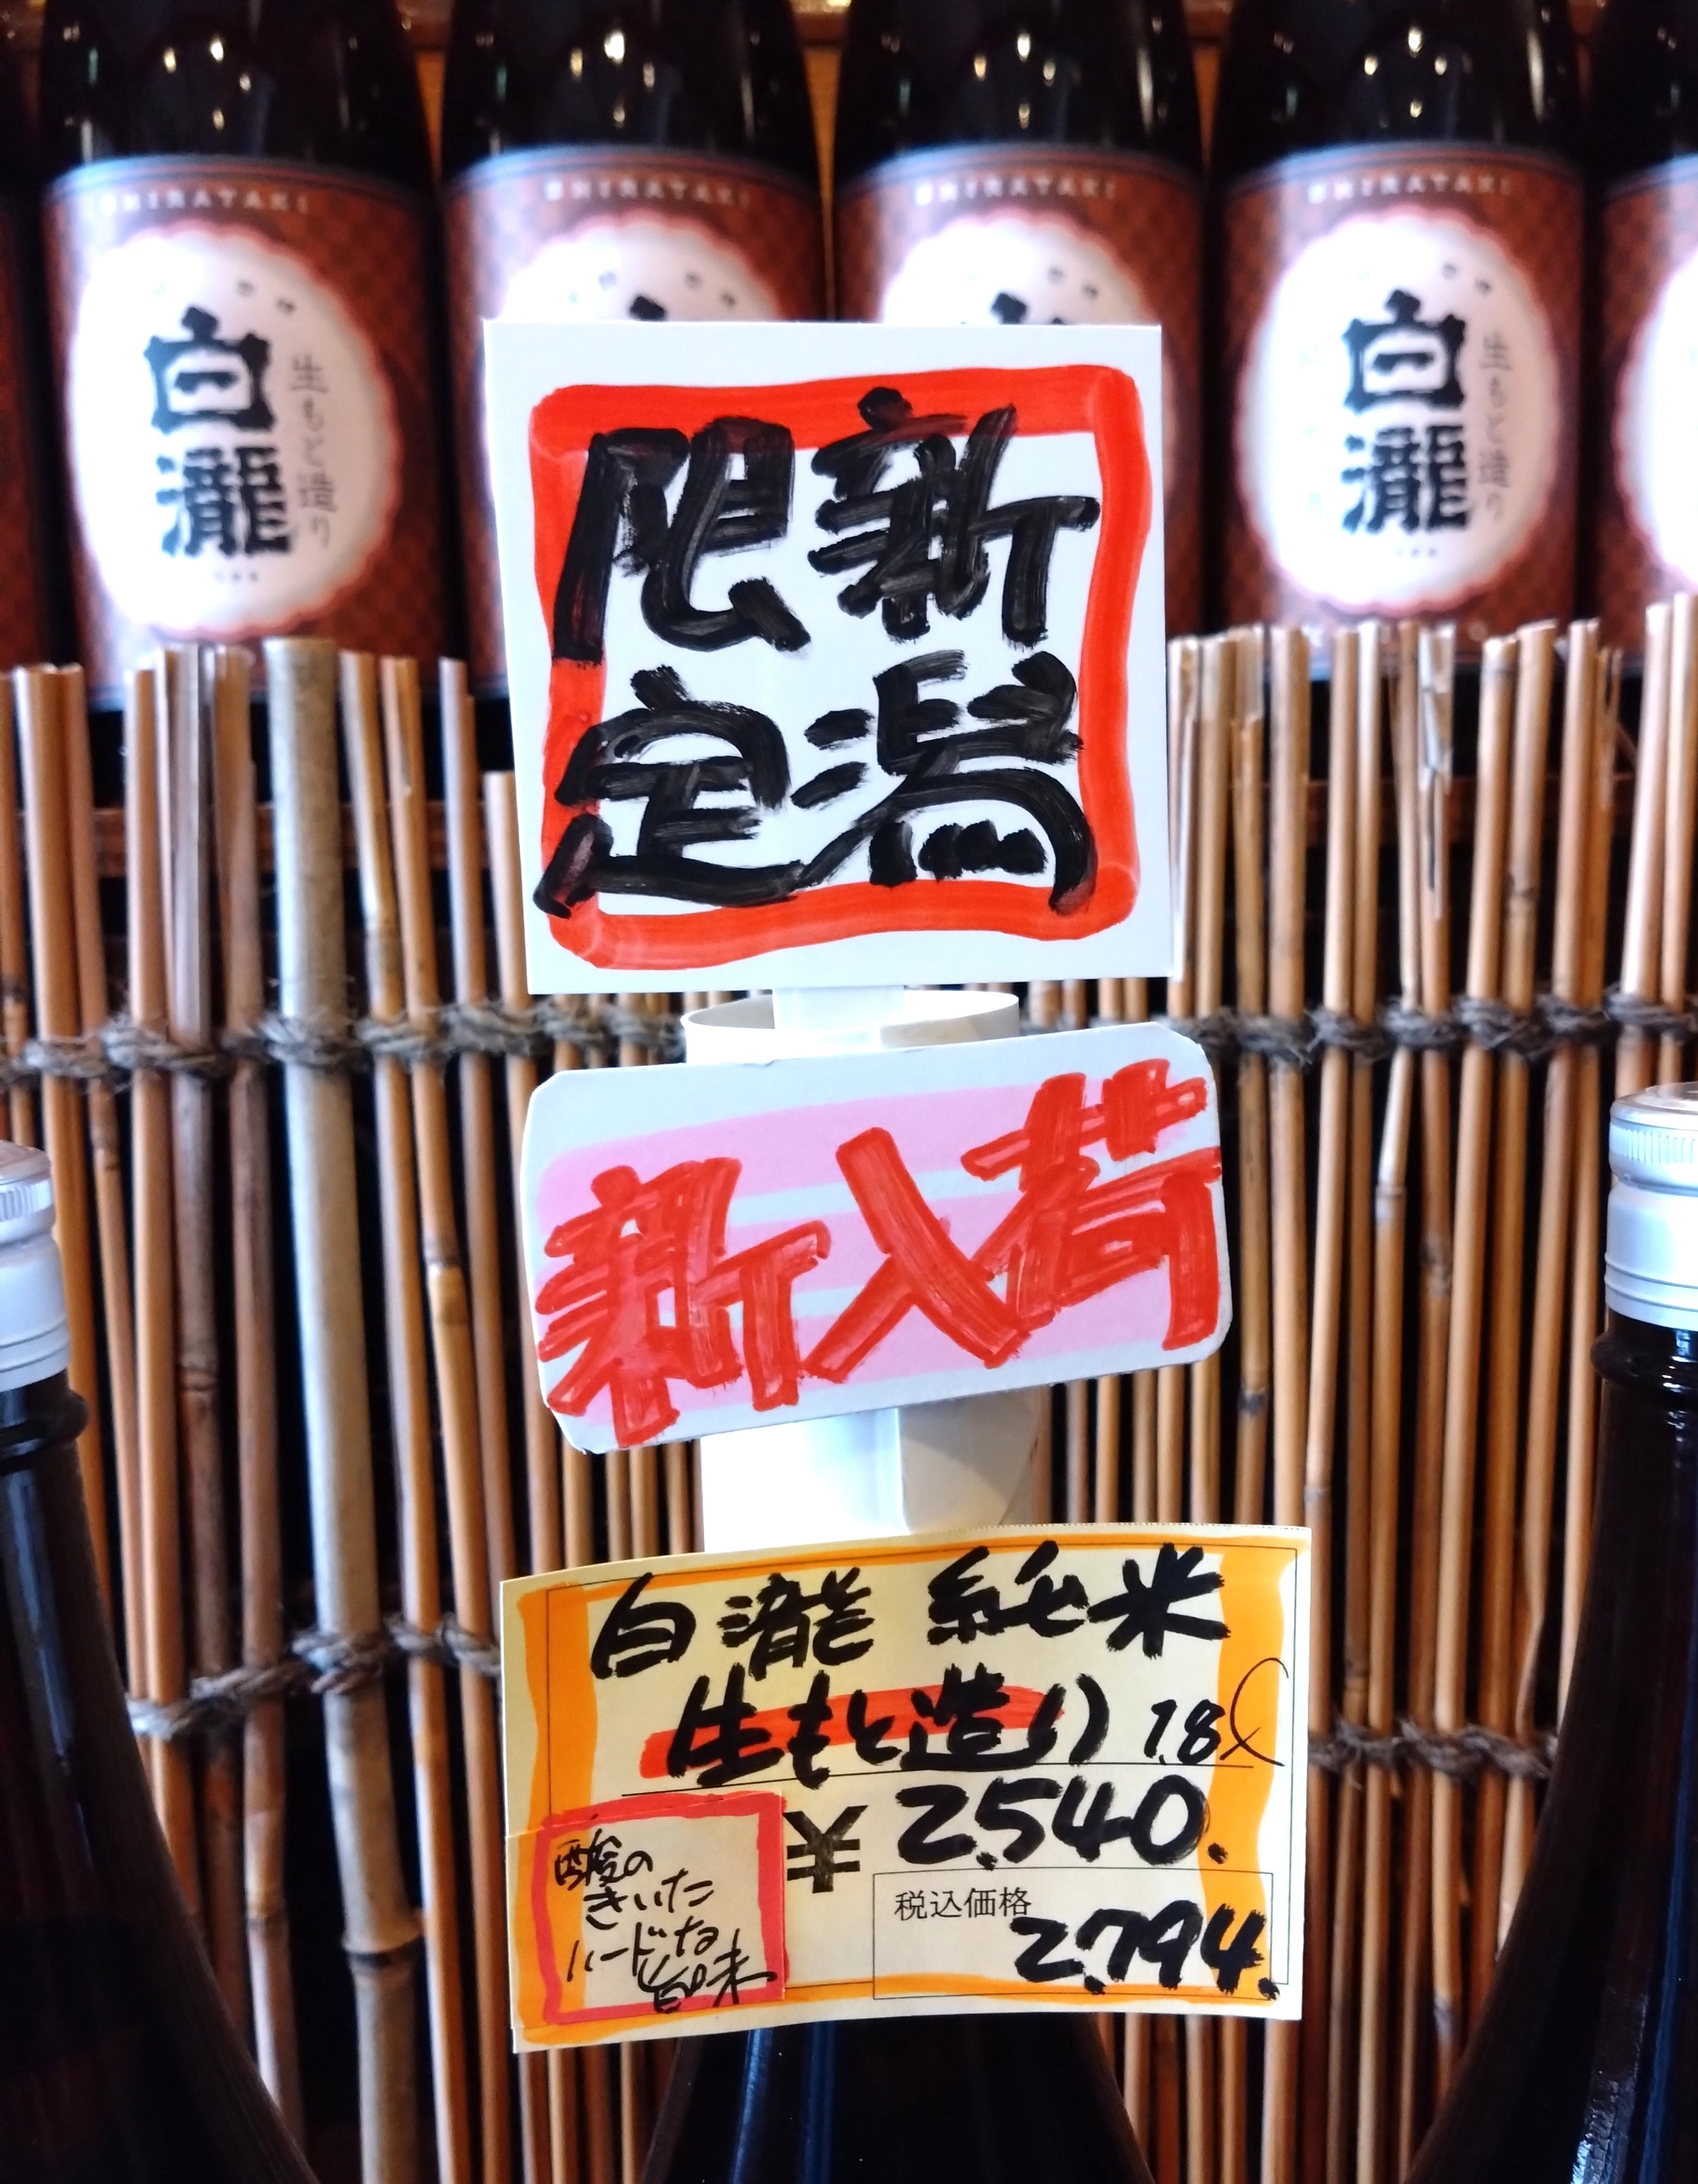 SHIRATAKI
白瀧
生もと造り
SHIRATAKI
SHIRATAKI
SHIRATAKI
白瀧
生もと造り
新潟
限定
新入荷
白瀧 純米
生もと造り 1.8ℓ
¥ 2,540.
税込価格
2,794.
酸の
きいた
ハードな
旨味